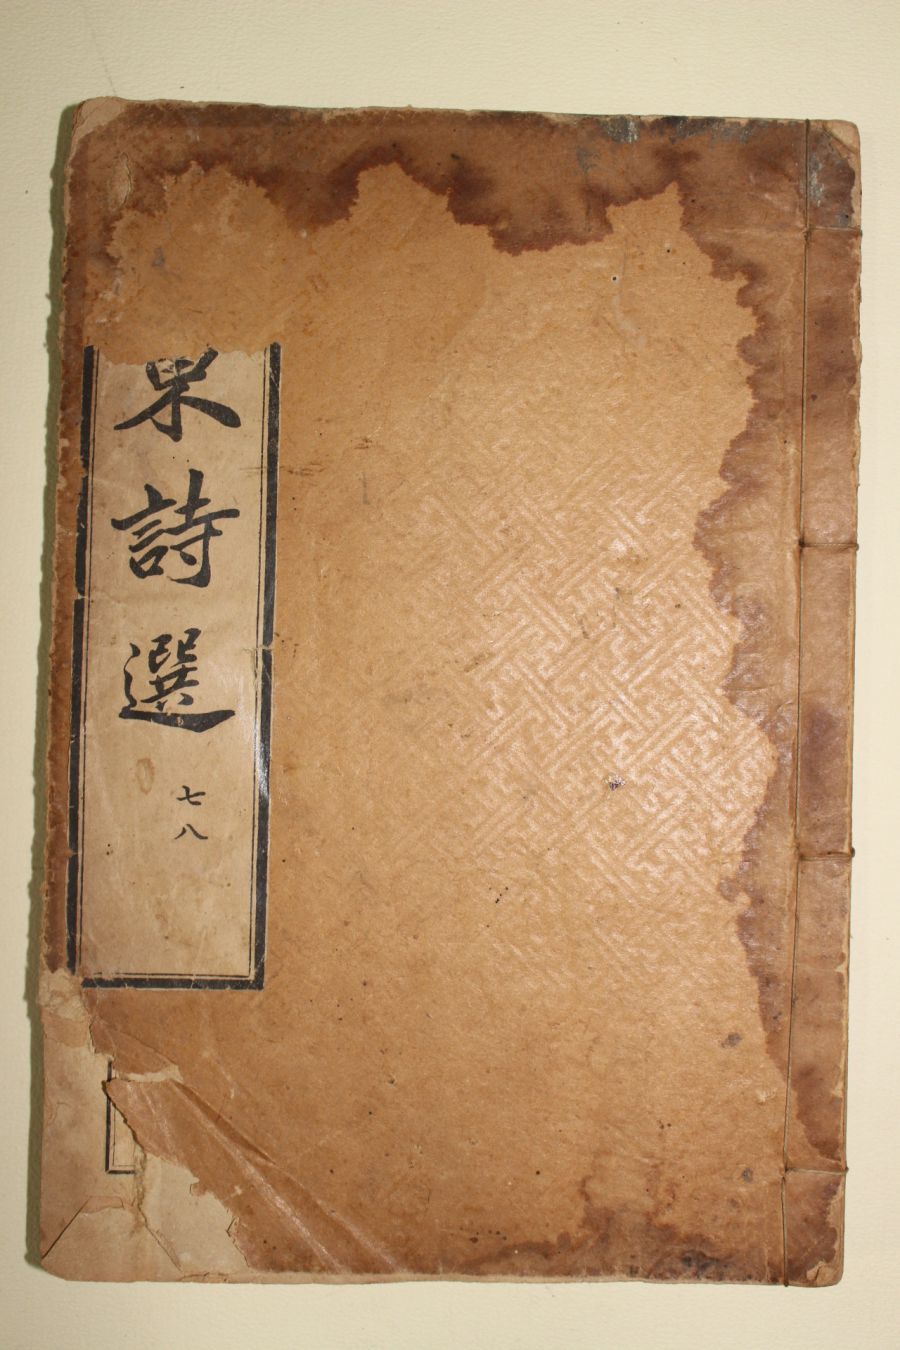 東詩選
七八